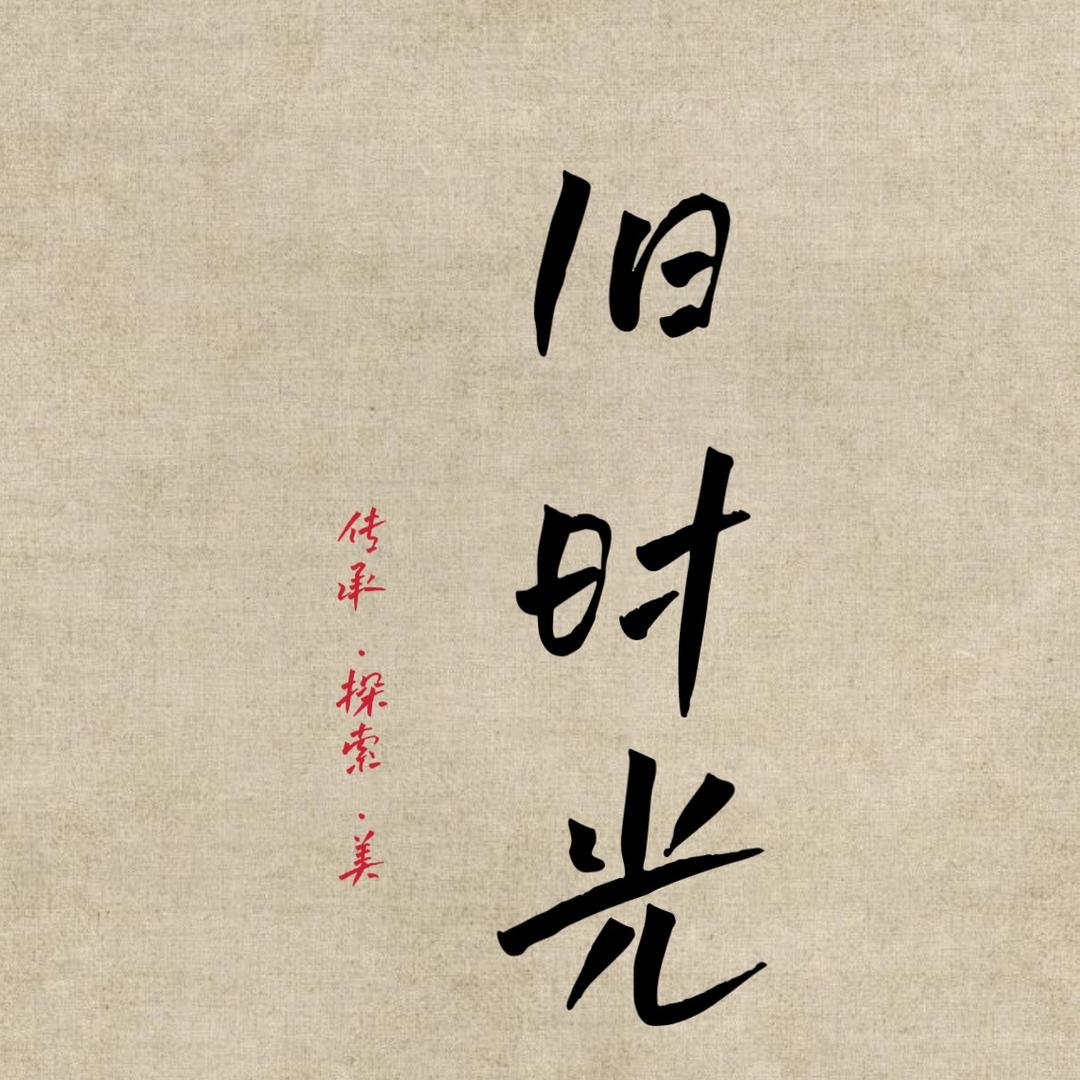 旧时光
传承·探索·美